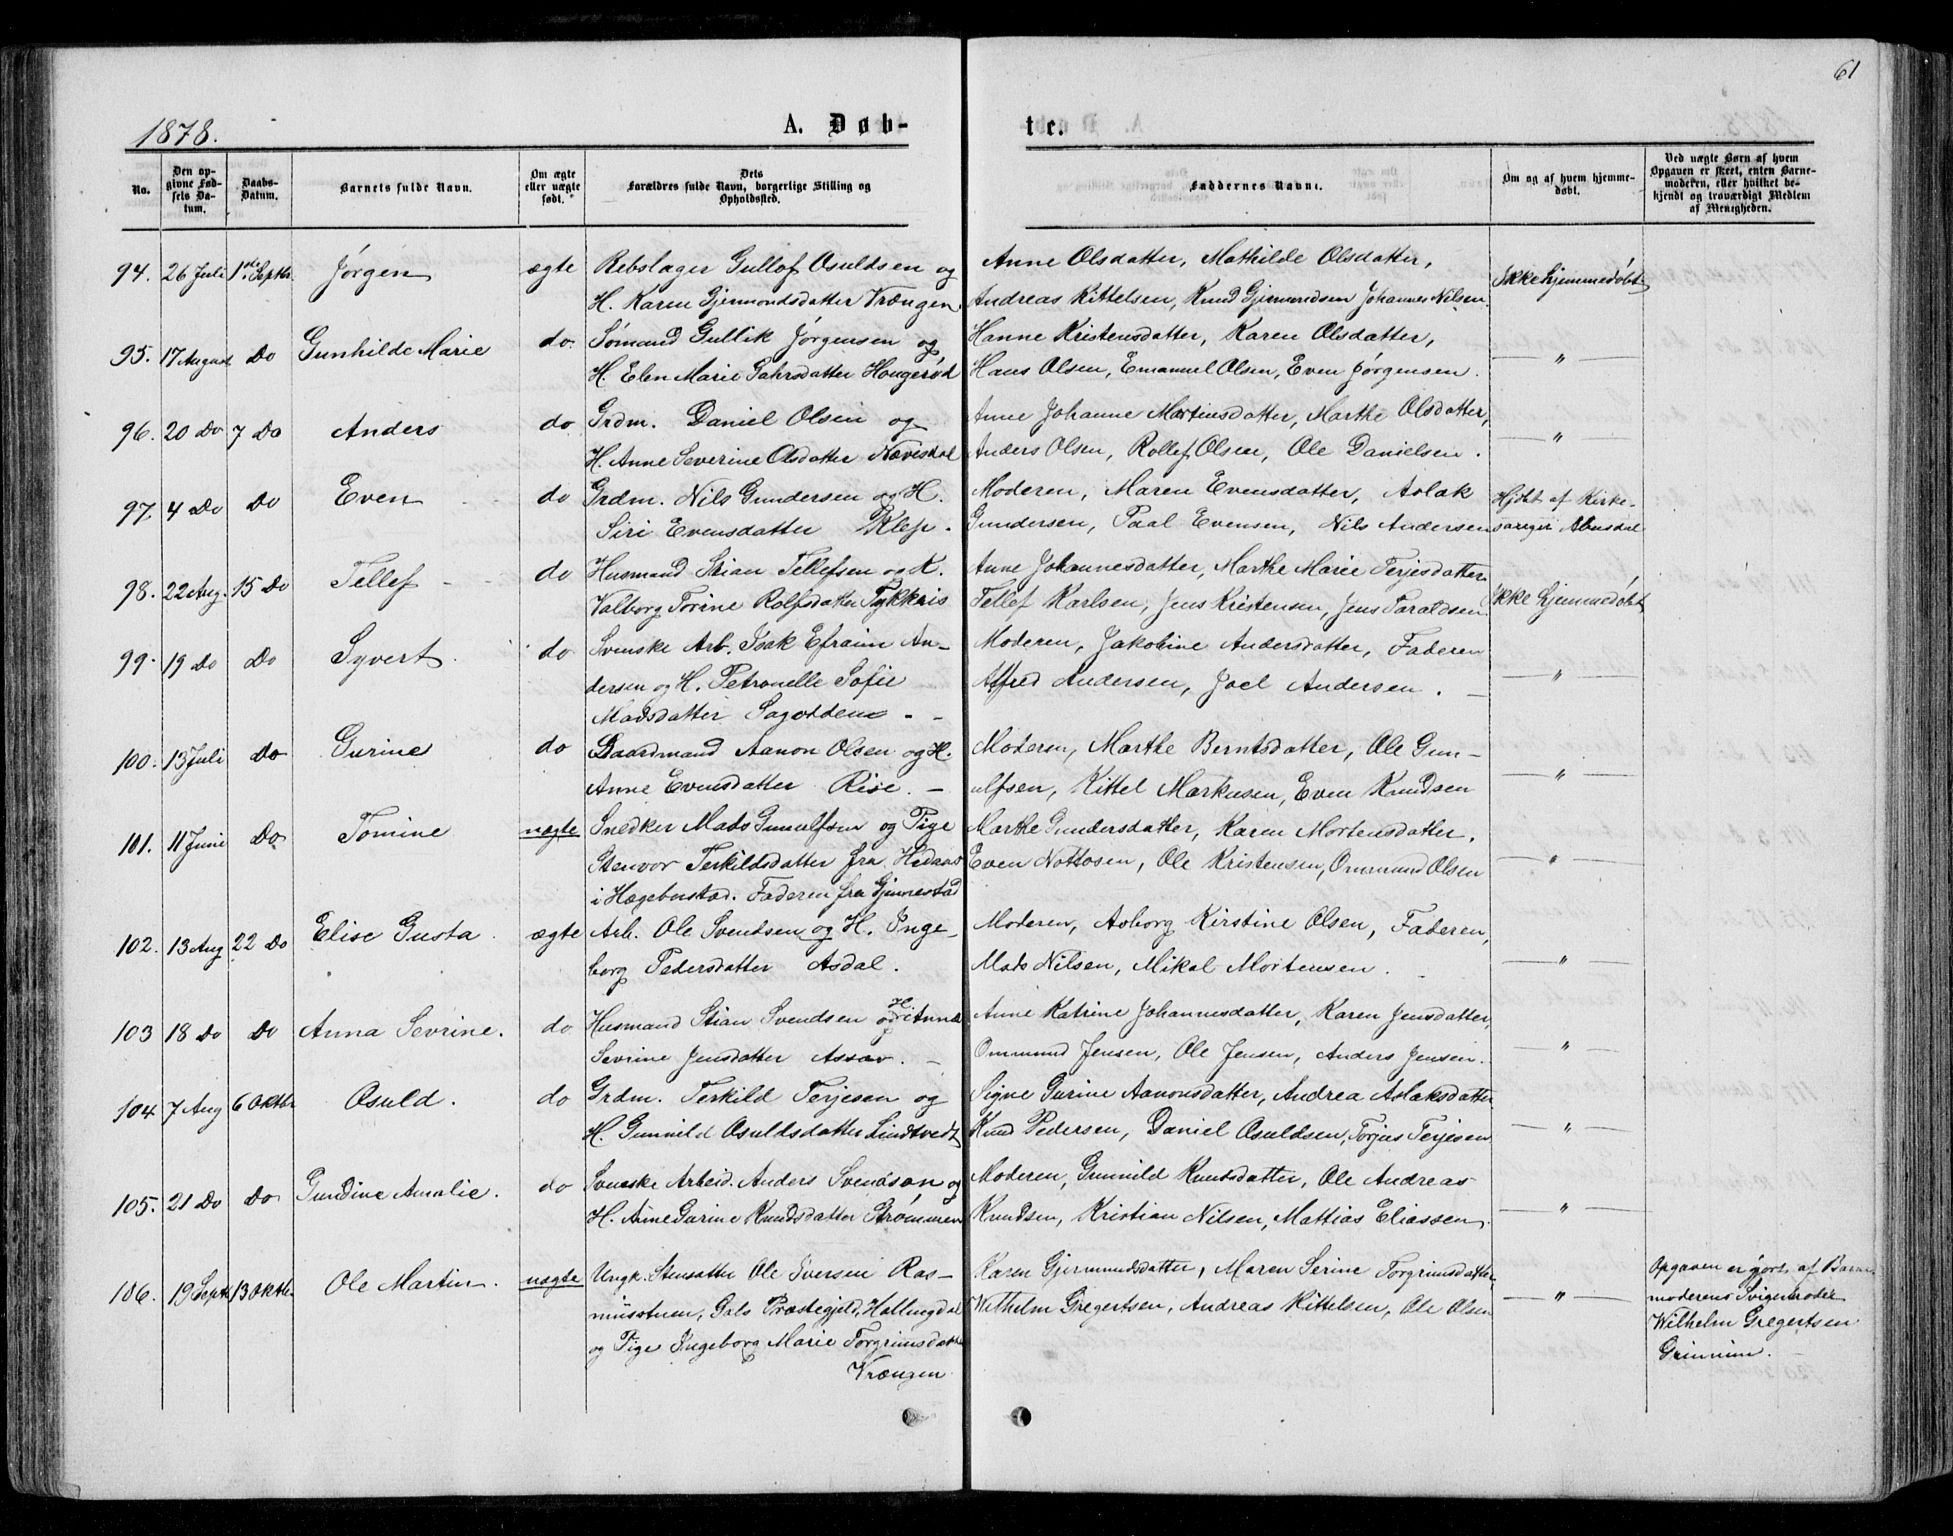 61
1878.
A. Døb-
te.
No.
Den opgivne Fødsels Datum.
Daabs-Datum.
Barnets fulde Navn.
Om ægte eller uægte født.
Dets Forældres fulde Navn, borgerlige Stilling og Opholdssted.
Faddernes Navne.
Om og af hvem hjemmedøbt.
Ved uægte Børn af hvem Opgaven er skeet, enten Barnemoderen, eller hvilket bekjendt og troværdigt Medlem af Menigheden.
94. 26 Juli 1ste Septbr Jørgen ægte Rebslager Gullof Osuldsen og
H. Karen Gjermondsdatter Vrængen
Anne Olsdatter, Mathilde Olsdatter,
Andreas Kittelsen, Knud Gjermundsen Johannes Nilsen.
Ikke hjemmedøbt
95. 17 August Do Gunhilde Marie do. Sömand Gullik Jørgensen og
H. Elen Marie Lahrsdatter Hougerød
Hanne Kristensdatter, Karen Olsdatter,
Hans Olsen, Emanuel Olsen, Even Jørgensen.
— " —
96. 20 Do 7 Do Anders do Grdm. Daniel Olsen og
H. Anne Severine Olsdatter Nævesdal
Anne Johanne Martinsdatter, Marthe Olsdatter,
Anders Olsen, Rollef Olsen, Ole Danielsen.
— " —
97. 4 Do Do Even do Grdm. Nils Gundersen og H.
Siri Evensdatter Klep.
Moderen, Maren Evensdatter, Aslak
Gundersen, Paal Evensen, Nils Andersen
Hjdbt af Kirke-
sanger Abusdal
98. 22 Aug. 15 Do Tellef do Husmand Stian Tellefsen og H.
Valborg Torine Rolfsdatter Tykkris
Anne Johannesdatter, Marthe Marie Terjesdatter
Tellef Karlsen, Jens Kristensen, Jens Taraldsen
Ikke hjemmedøbt
99. 19 Do Do Syvert. do Svenske Arb. Isak Efraim An-
dersen og H. Petronelle Sofie
Madsdatter Sagodden -
Moderen, Jakobine Andersdatter, Faderen
Alfred Andersen, Joel Andersen.
— " —
100. 13 Juli Do Gurine do Gaardmand Aanon Olsen og H.
Anne Evensdatter Rise. -
Moderen, Marthe Berntsdatter, Ole Gun-
ulfsen, Kittel Markusen, Even Knudsen
— " —
101. 11 Juni Do Tomine uægte Snedker Mads Gunulfsen og Pige
Stenvor Terkildsdatter fra
i Hægebostad. Faderen fra Gjerrestad
Marthe Gundersdatter, Karen Mortensdatter,
Even Nottosen, Ole Kristensen, Ommund Olsen
— " —
102. 13 Aug 22 Do Elise Gusta. ægte Arb. Ole Svendsen og H. Inge-
borg Pedersdatter Asdal.
Moderen, Asborg Kirstine Olsen, Faderen,
Mads Nilsen, Mikal Mortensen.
— " —
103 18 Do Do Anna Sevrine. do Husmand Stian Svendsen og H. Anne
Sevrine Jensdatter Assav. -
Anne Katrine Johannesdatter, Karen Jensdatter,
Ommund Jensen, Ole Jensen, Anders Jensen.
— " —
104. 7 Aug 6 Oktbr Osuld. do Grdm. Terkild Terjesen og
H. Gunnild Osuldsdatter Lindtvedt
Signe Gurine Aanonsdatter, Andrea Aslaksdatter
Knud Pedersen, Daniel Osuldsen, Torjus Terjesen
— " —
105. 21 Do Do Gundine Amalie. do Svenske Arbeid. Anders Svendson og
H. Anne Gurine Knudsdatter Strømmen
Moderen, Gunnild Knutsdatter, Ole Andreas
Knudsen, Kristian Nilsen, Mattias Eliassen.
— " —
106. 19 Septb 13 Oktbr. Ole Martin. uægte Ungk. Stensætter Ole Iversen Ras-
musstuen, Gols Præstegjeld, Hallingdal
og Pige Ingeborg Marie Torgrimsdatter
Vrængen
Karen Gjermundsdatter, Maren Serine Torgrimsdatter
Wilhelm Gregertsen, Andreas Kittelsen, Ole Olsen
— " —
Opgaven er gjort af Barne-
moderens
Wilhelm Gregertsen